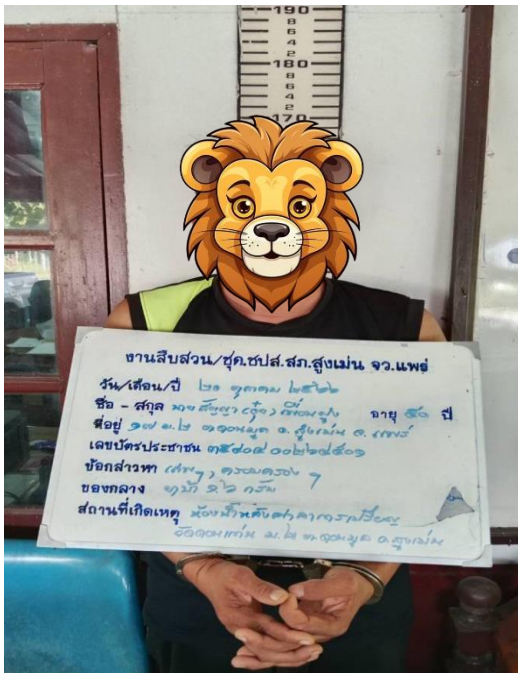 190
8
6
4
2
180
8
6
4
2
170
งานสืบสวน/ชุด.ชปส.สภ.สูงเม่น จว.แพร่
วัน/เดือน/ปี ๒๑ ตุลาคม ๒๕๖๖
ชื่อ - สกุล นาย อายุ ๕๐ ปี
ที่อยู่ ๑๗ ม.๒ ต.ดอนมูล อ.สูงเม่น จ.แพร่
เลขบัตรประชาชน
ข้อกล่าวหา เสพๆ, ครอบครอง ๆ
ของกลาง กรัม
สถานที่เกิดเหตุ ห้องน้ำหลังศาลาการเปรียญ
ม.๒ ต.ดอนมูล อ.สูงเม่น